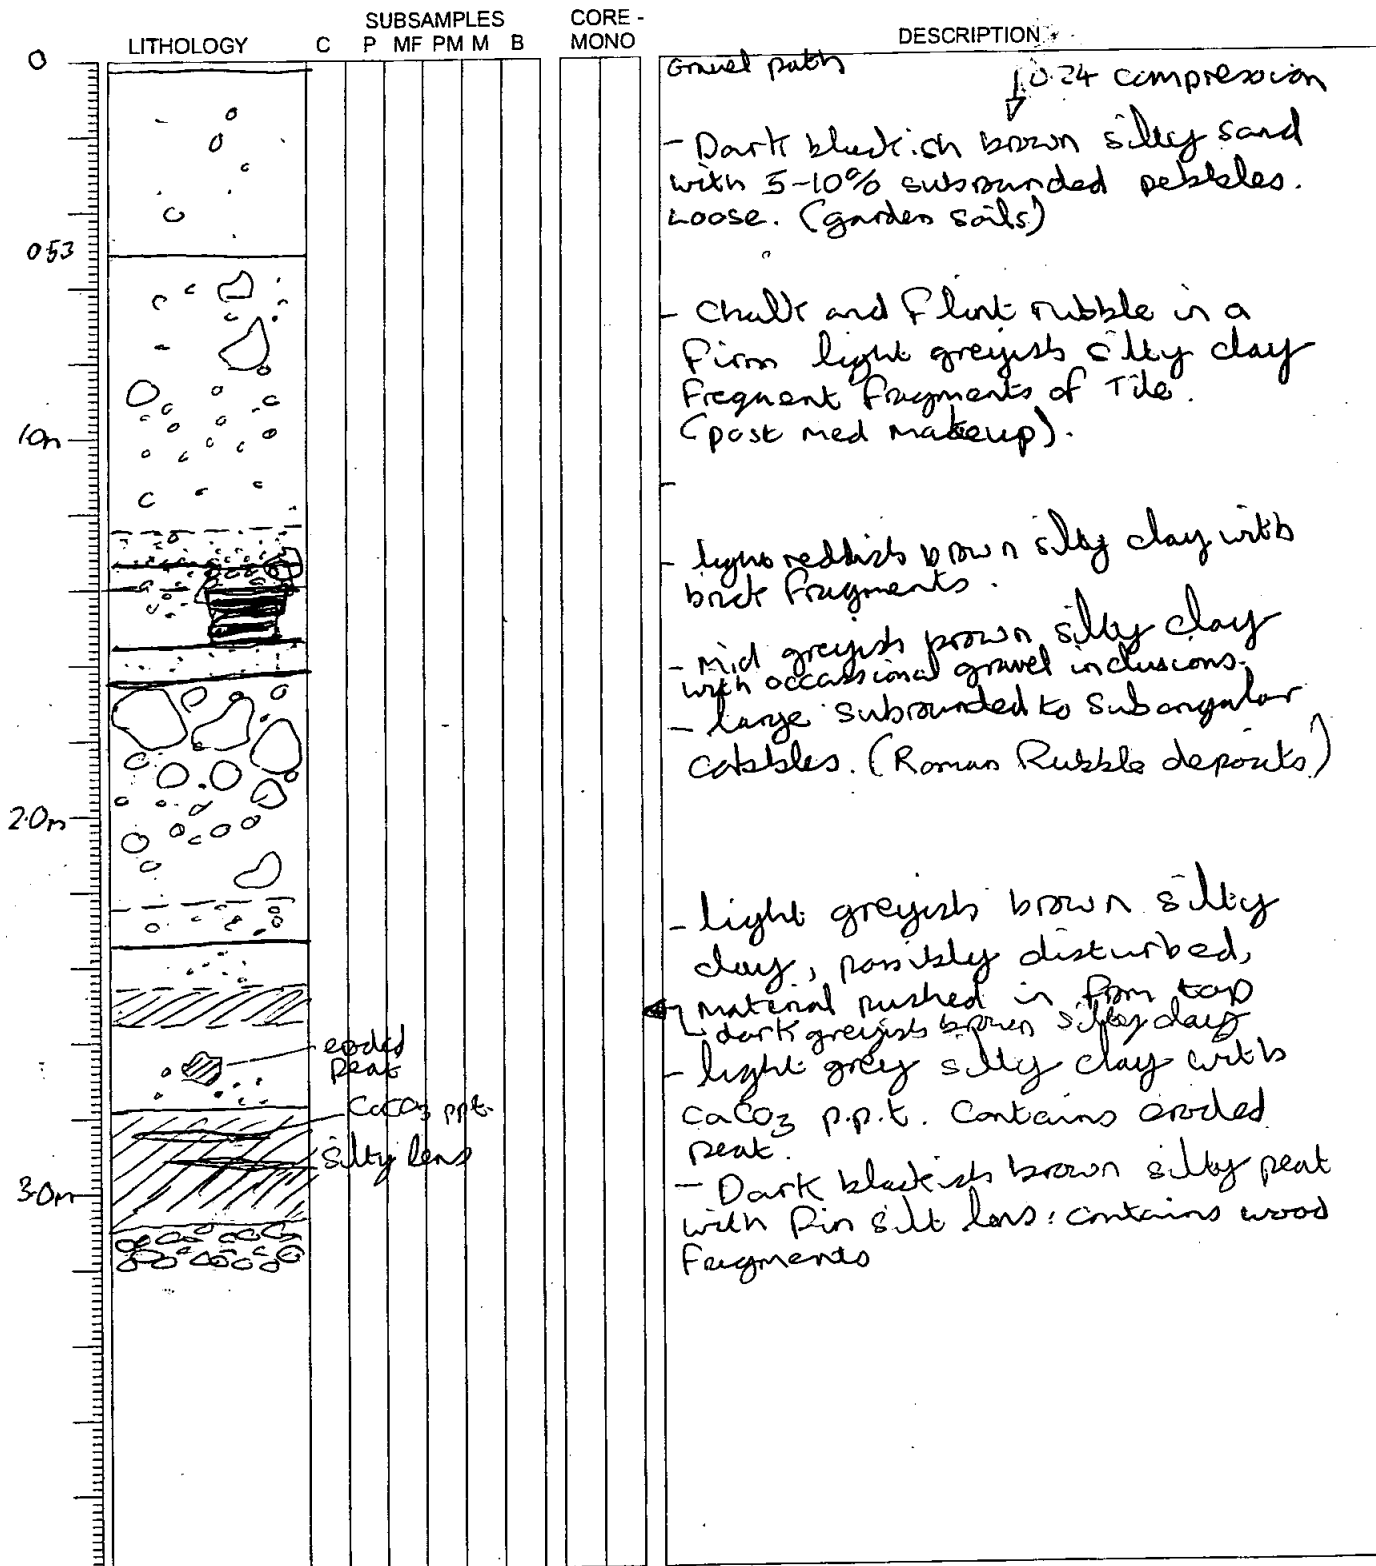 SUBSAMPLES
CORE - MONO
LITHOLOGY C P MF PM M B
DESCRIPTION
0
Gravel path
0.24 compression
- Dark blackish brown silty sand
with 5-10% subrounded pebbles.
Loose. (garden soils)
053
- Chalk and Flint rubble in a
Firm light greyish silty clay
Frequent fragments of Tile.
(post med makeup).
1.0m
- light reddish brown silty clay with
brick fragments.
- Mid greyish brown silty clay
with occassional gravel inclusions.
- large subrounded to subangular
cobbles. (Roman Rubble deposits)
2.0m
- light greyish brown silty
clay, possibly disturbed,
material pushed in from top
dark greyish brown silty clay
eroded
peat
- light grey silty clay with
CaCO3 p.p.t. Contains eroded
peat.
CaCO3 ppt.
silty lens
3.0m
- Dark blackish brown silty peat
with silt lens: contains wood
fragments